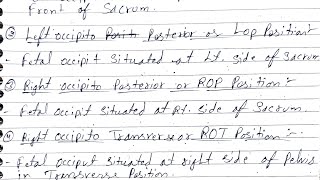 Front of Sacrum.
② Left occipito Posterior or Lop Position:-
- Fetal occipit Situated at Lt. side of Sacrum
③ Right occipito Posterior or ROP Position:-
- Fetal occipit Situated at Rt. side of Sacrum.
④ Right occipito Transverse or ROT Position:-
- Fetal occiput situated at right side of Pelvis
in Transverse Position.